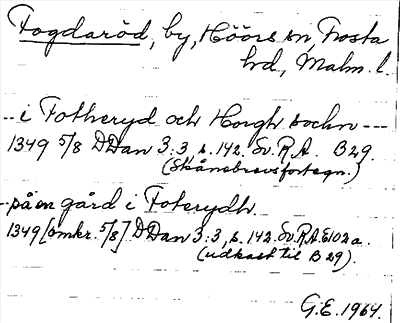 Fogdaröd, by, Höörs sn, Frosta
hd., Malm. l.
-- i Fotheryd och Horgh sochn ---
1349 5/8 DDan 3:3 s. 142. Sv. R.A. B 29.
(Skånebrevsfortegn.)
-- på en gård i Foterydh.
1349 [omkr. 5/8] DDan 3:3, s. 142. Sv. R.A. E102a.
(udkast til B 29).
G.E. 1964.